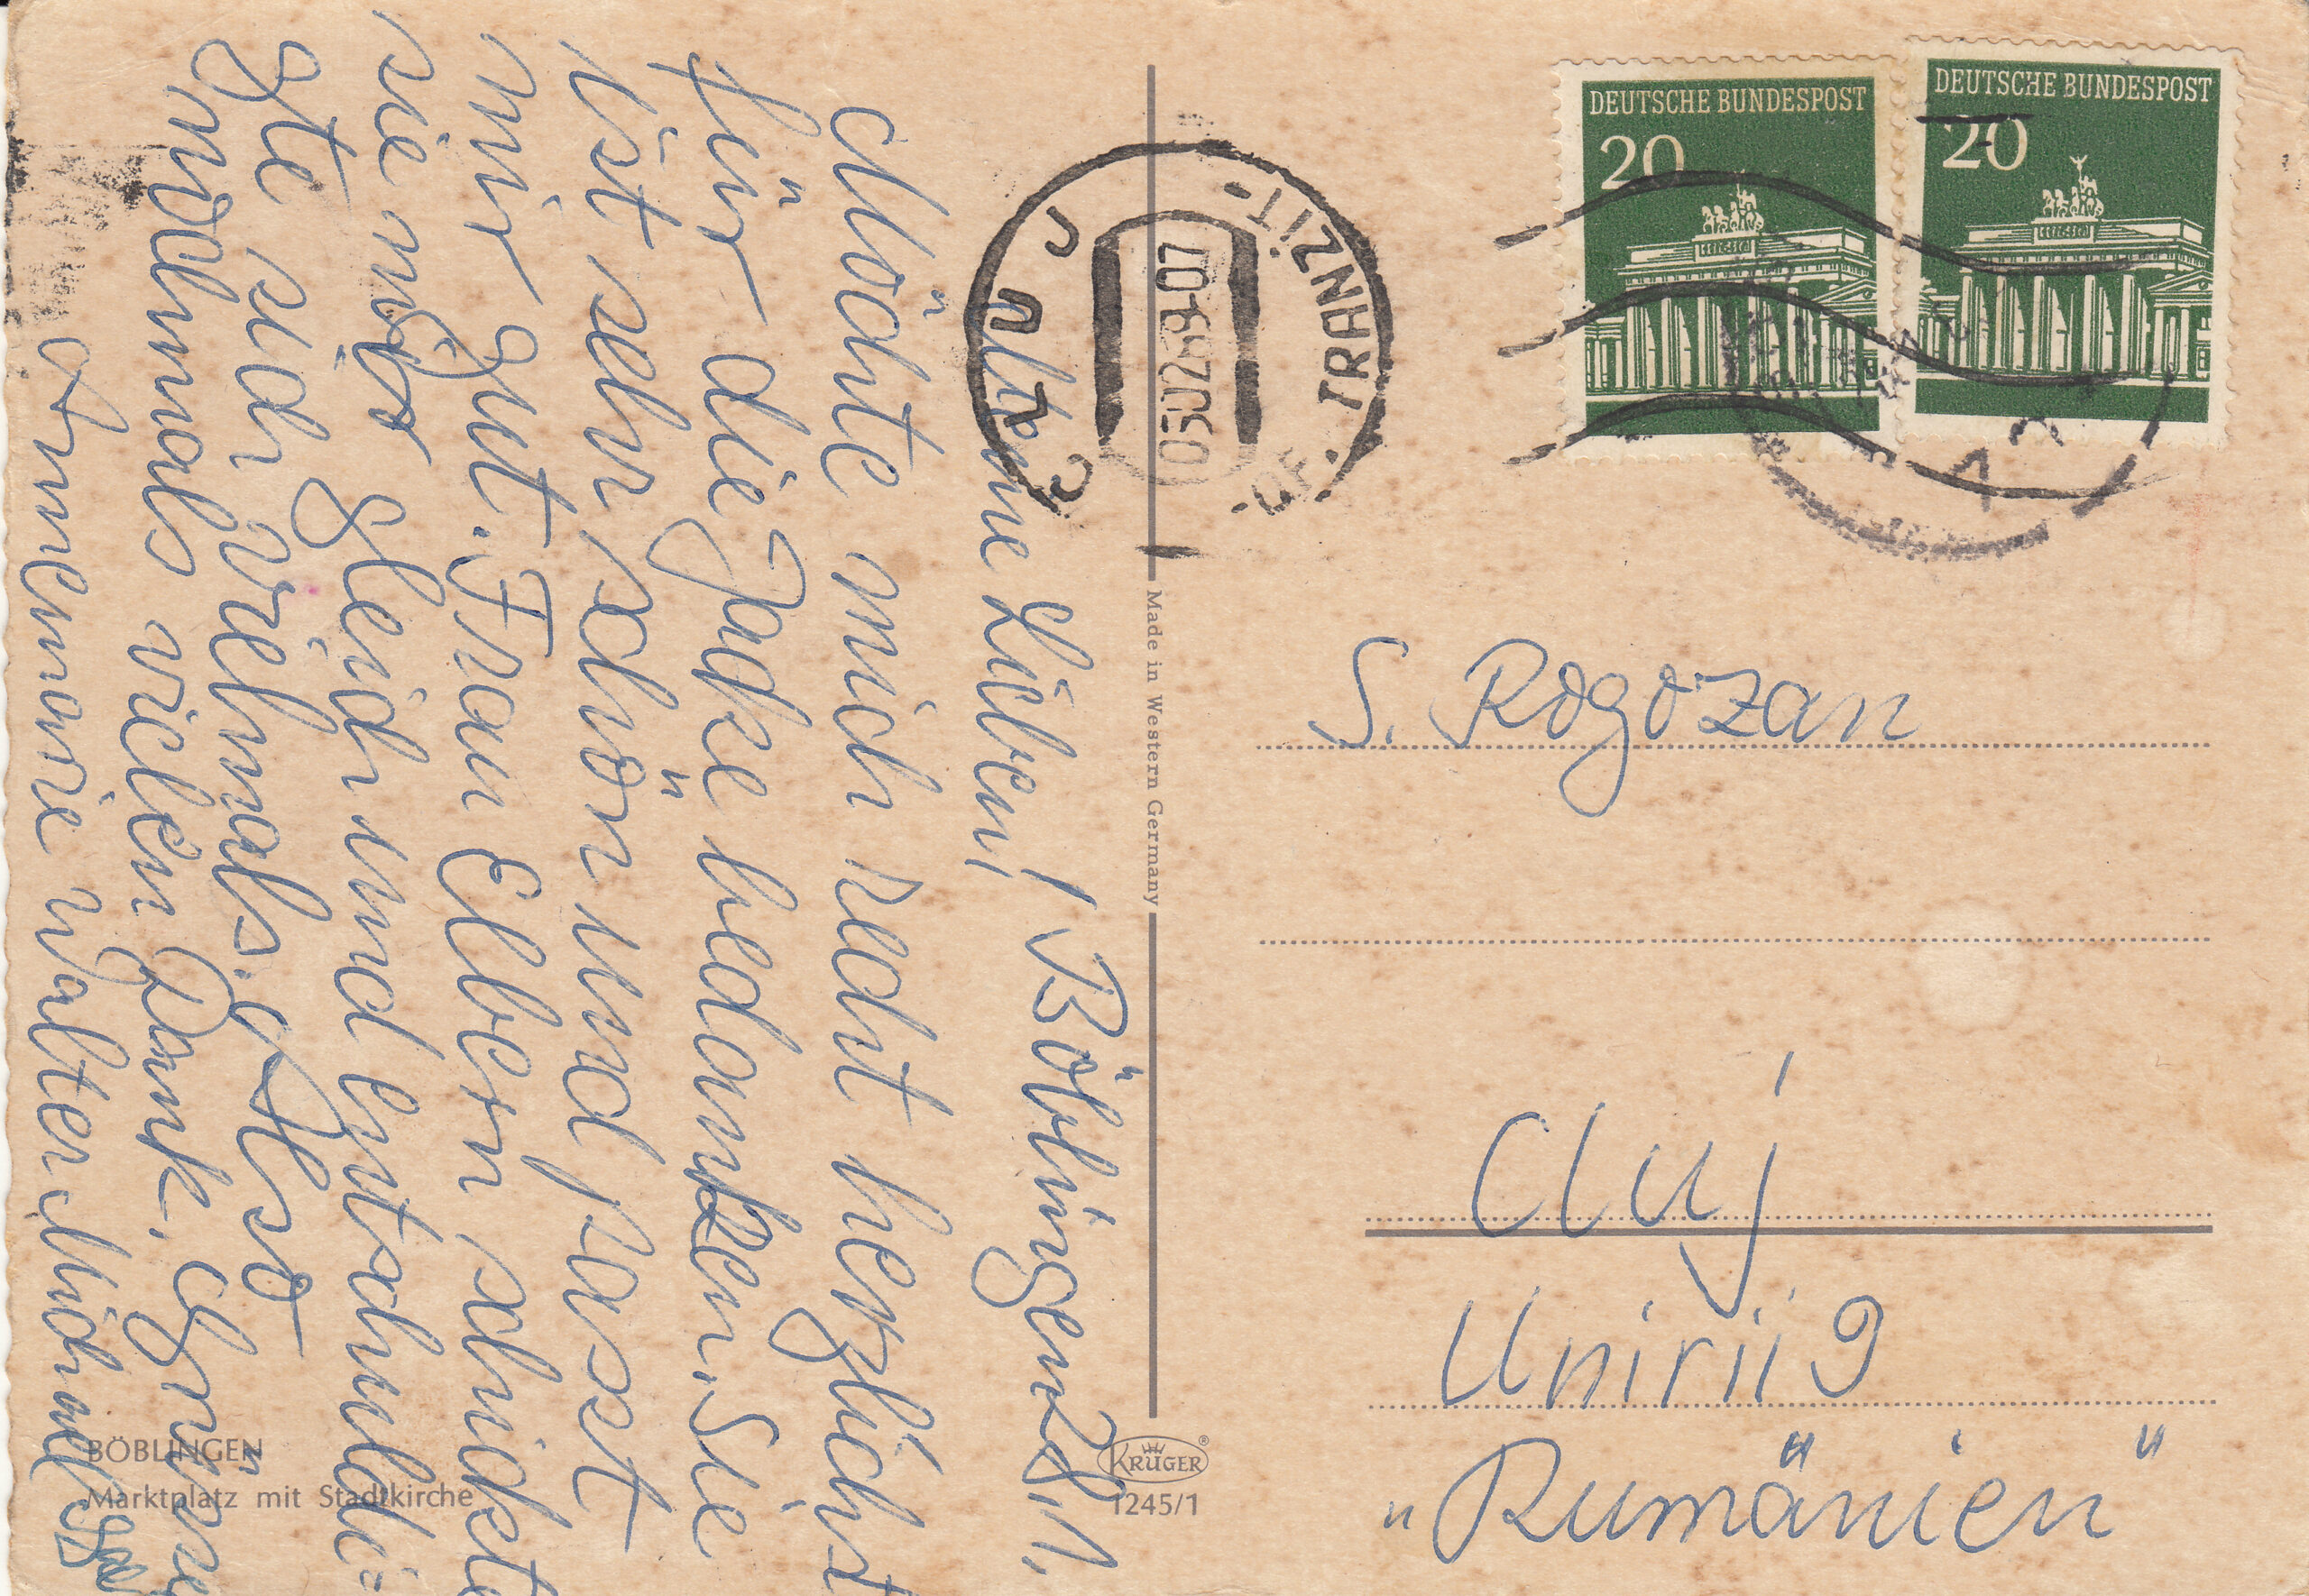 DEUTSCHE BUNDESPOST
20
DEUTSCHE BUNDESPOST
20
CLUJ
OF. TRANZIT
050269-07
Made in Western Germany
S. Rogozan
Cluj
Unirii 9
"Rumänien"
KRÜGER
1245/1
BÖBLINGEN
Marktplatz mit Stadtkirche
Meine Lieben! Böblingen 28.1.
Möchte mich recht herzlichst
für die Jacke bedanken. Sie
ist sehr schön und passt
mir gut. Frau Elbern schickte
sie mir gleich und entschuldi=
gte sich vielmals. Also
nochmals vielen Dank. Grüsse
Annemarie Walter Michael